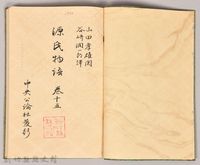 山田孝雄閲
谷崎潤一郎譯
源氏物語 卷十五
中央公論社發行